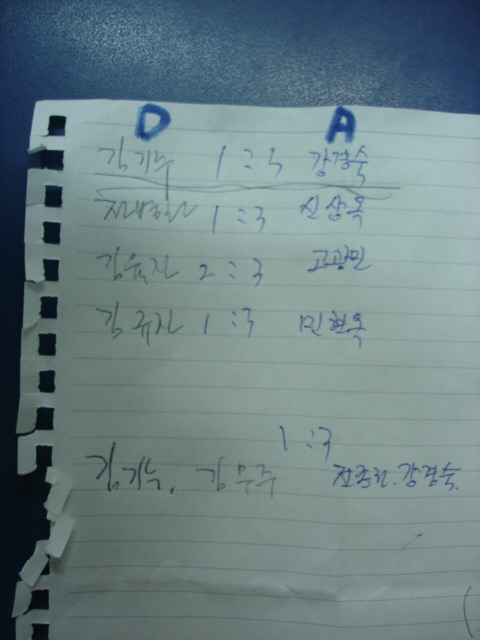 D A
김기누 1:3 강경숙
1:3 신상옥
김윤자 2:3 고광민
김규자 1:3 민현옥
1:3
김기누, 김무주 전종현.강경숙.